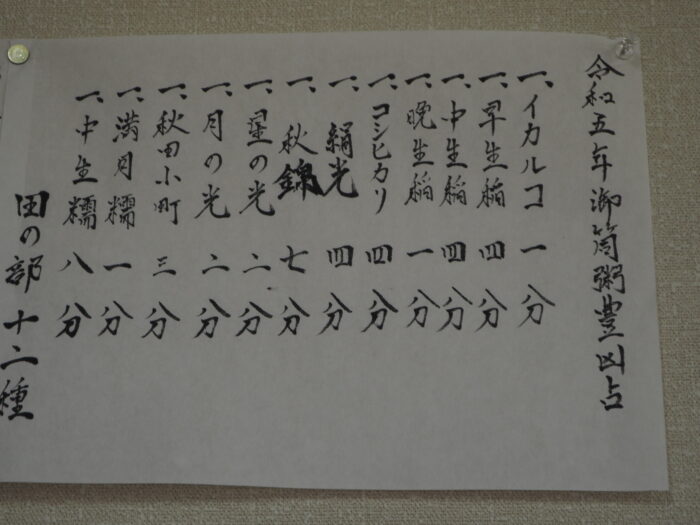 令和五年御筒粥豊凶占
一、イカルコ 一分
一、早生稲 四分
一、中生稲 四分
一、晩生稲 一分
一、コシヒカリ 四分
一、絹光 四分
一、秋錦 七分
一、星の光 二分
一、月の光 二分
一、秋田小町 三分
一、満月糯 一分
一、中生糯 八分
田の部 十二種